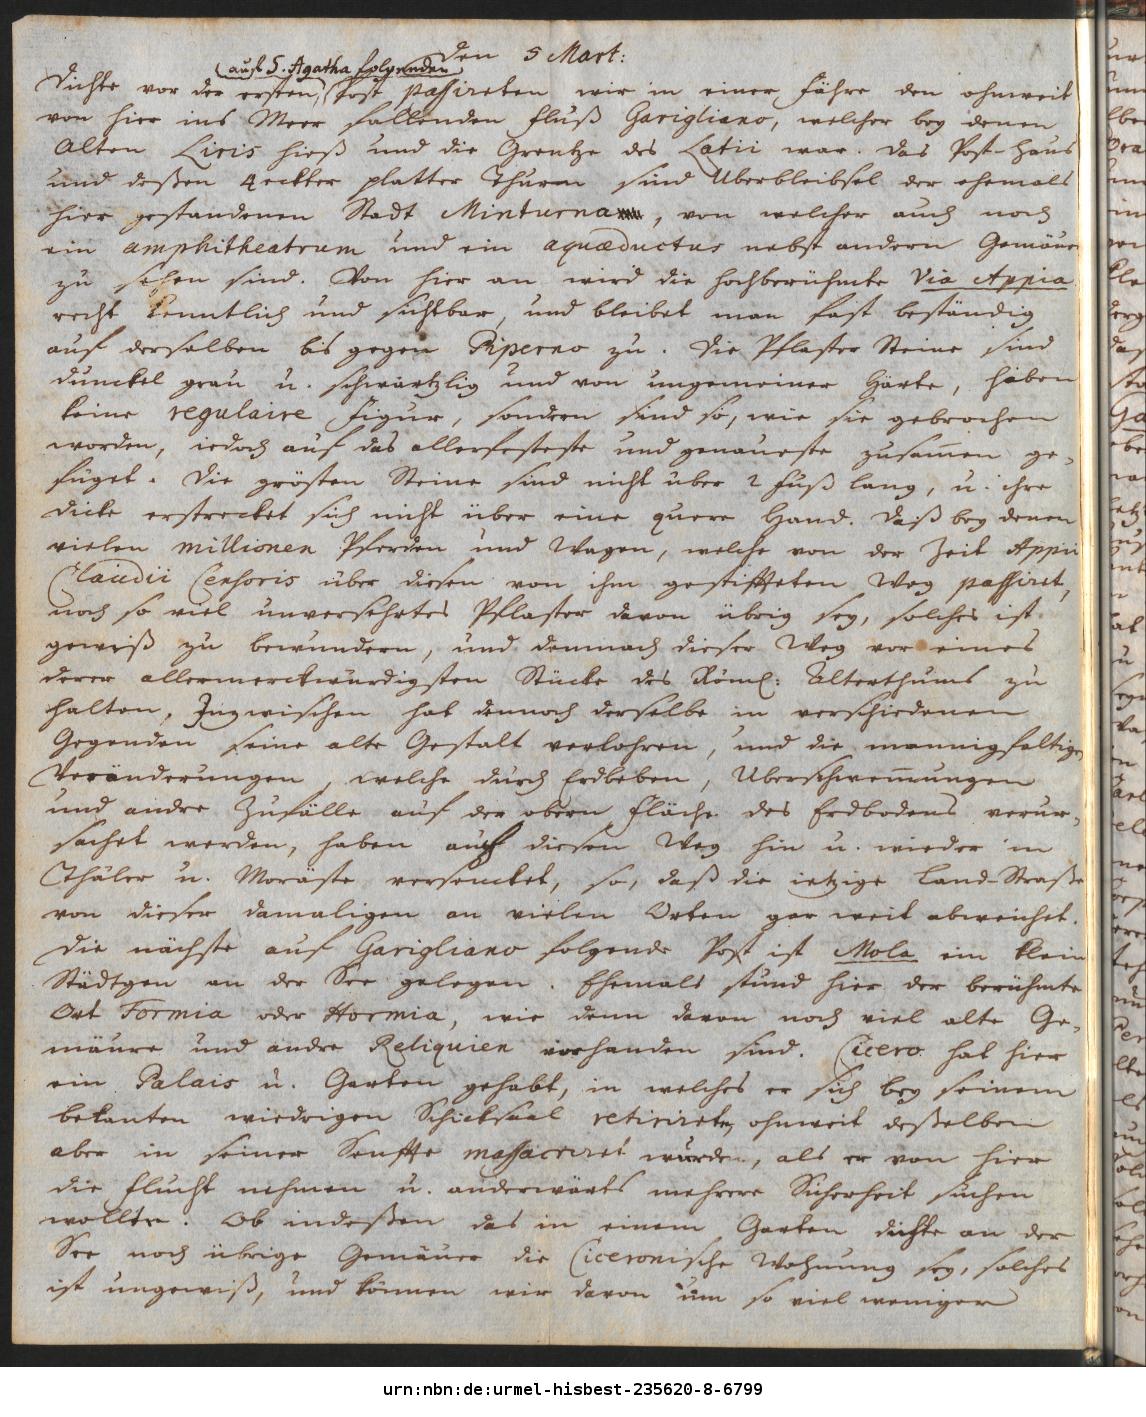 den 5 Mart:
(auf S. Agatha folgenden)
Dichte vor der ersten Post passireten wir in einer Fähre den ohnweit
von hier ins Meer fallenden Fluß Garigliano, welcher bey denen
Alten Liris hieß und die Grentze des Latii war. Das Post-Haus
und deßen 4eckter platter Thurm sind Uberbleibsel der ehemals
hier gestandenen Stadt Minturna, von welcher auch noch
ein amphitheatrum und ein aquæductus nebst andern Gemäuer
zu sehen sind. Von hier an wird die hochberühmte Via Appia
recht kenntlich und sichtbar, und bleibet man fast beständig
auf derselben bis gegen Piperno zu. Die Pflaster Steine sind
dunckel grau u. schwärtzlig und von ungemeiner Härte, haben
keine regulaire Figur, sondern sind so, wie sie gebrochen
worden, iedoch auf das allerfesteste und genaueste zusamen ge-
füget. Die grösten Steine sind nicht über 2 Fuß lang, u. ihre
Dicke erstrecket sich nicht über eine quere Hand. Daß bey denen
vielen millionen Pferden und Wagen, welche von der Zeit Appii
Claudii Censoris über diesen von ihm gestiffteten Weg passiret,
noch so viel unversehrtes Pflaster davon übrig sey, solches ist
gewiß zu bewundern, und demnach dieser Weg vor eines
derer allermerckwürdigsten Stücke des Röml: Alterthums zu
halten. Inzwischen hat dennoch derselbe in verschiedenen
Gegenden seine alte Gestalt verlohren, und die mannigfaltigen
Veränderungen, welche durch Erdbeben, Uberschwemungen
und andre Zufälle auf der obern Fläche des Erdbodens verur-
sachet werden, haben auch diesen Weg hin u. wieder in
Thäler u. Moräste versencket, so, daß die ietzige Land-Straße
von dieser damaligen an vielen Orten gar weit abweichet.
Die nächste auf Garigliano folgende Post ist Mola ein klein
Städtgen an der See gelegen. Ehemals stund hier der berühmte
Ort Formia oder Hormia, wie denn davon noch viel alte Ge-
mäure und andre Reliquien vorhanden sind. Cicero hat hier
ein Palais u. Garten gehabt, in welches er sich bey seinem
bekanten wiedrigen Schicksaal retirirete, ohnweit deßelben
aber in seiner Senffte massacriret wurde, als er von hier
die Flucht nehmen u. anderwärts mehrere Sicherheit suchen
wollte. Ob indeßen das in einem Garten dichte an der
See noch übrige Gemäuer die Ciceronische Wohnung sey, solches
ist ungewiß, und können wir davon um so viel weniger
urn:nbn:de:urmel-hisbest-235620-8-6799